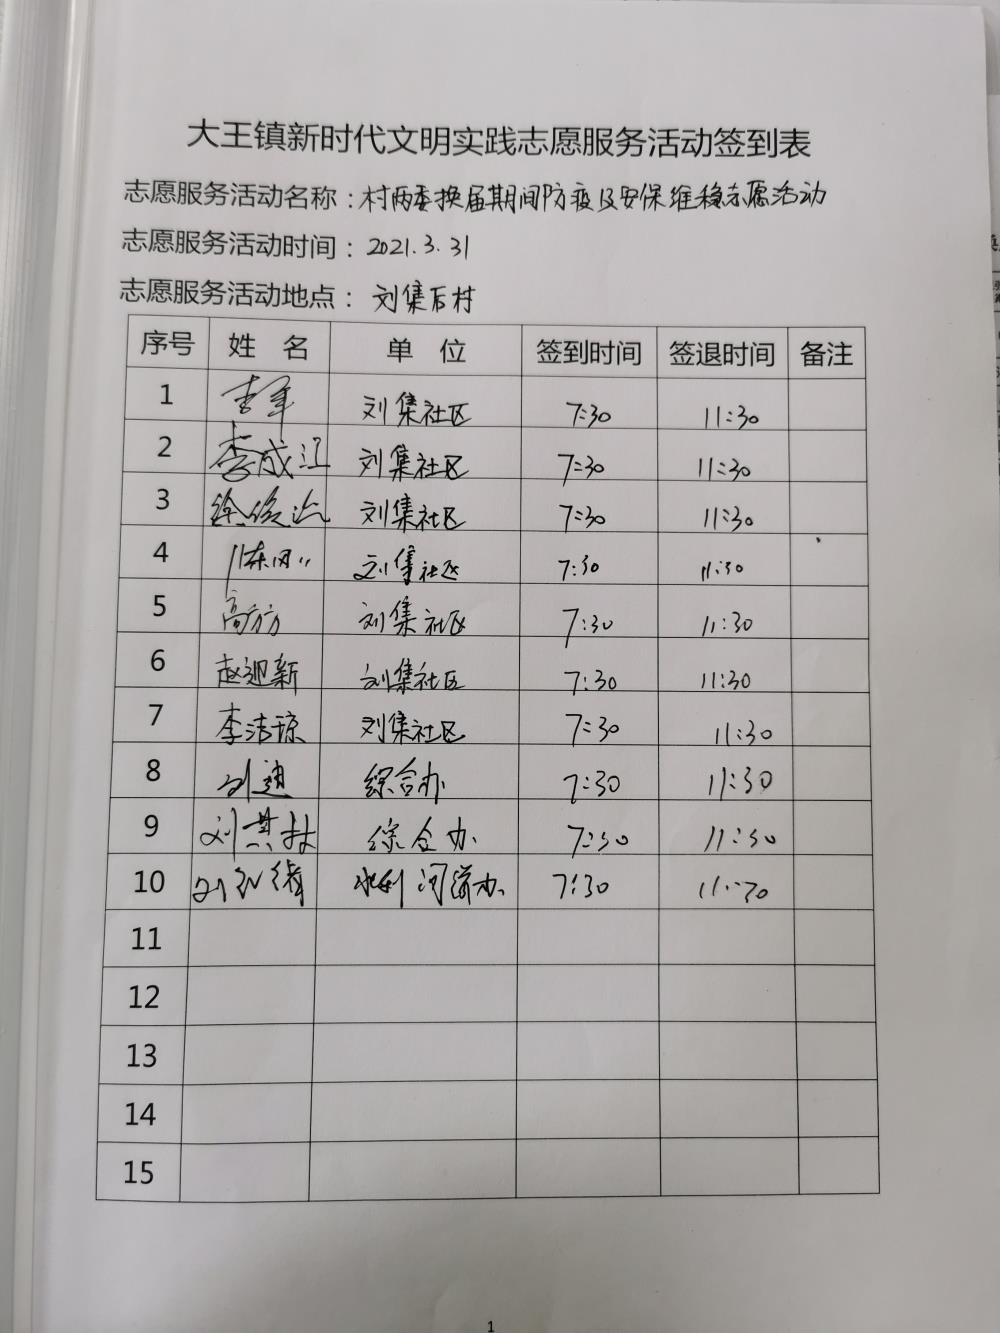 大王镇新时代文明实践志愿服务活动签到表
志愿服务活动名称：村两委换届期间防疫及安保维稳志愿活动
志愿服务活动时间：2021.3.31
志愿服务活动地点：刘集后村
序号 姓 名 单 位 签到时间 签退时间 备注
1 刘集社区 7:30 11:30
2 李成江 刘集社区 7:30 11:30
3 徐俊 刘集社区 7:30 11:30
4 刘集社区 7:30 11:30
5 高方方 刘集社区 7:30 11:30
6 赵迎新 刘集社区 7:30 11:30
7 李洁琼 刘集社区 7:30 11:30
8 刘迪 综合办 7:30 11:30
9 刘其 综合办 7:30 11:30
10 刘 水利 河 办 7:30 11:30
11
12
13
14
15
1